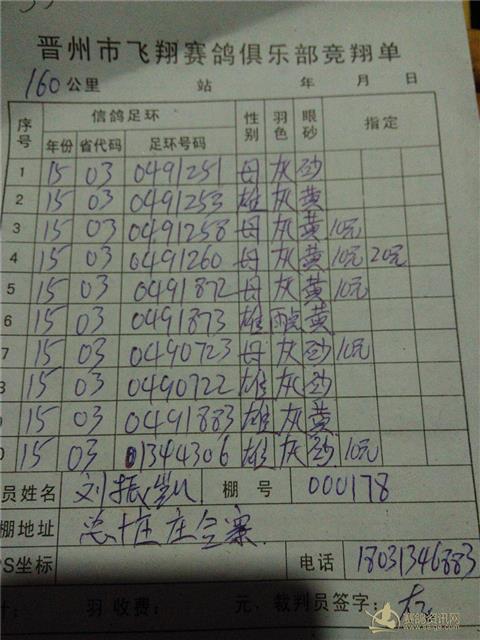 晋州市飞翔赛鸽俱乐部竞翔单
160公里 站 年 月 日
序号 信鸽足环 性别 羽色 眼砂 指定
年份 省代码 足环号码
1 15 03 0491251 母 灰 砂
2 15 03 0491253 雄 灰 黄
3 15 03 0491258 母 灰 黄 10元
4 15 03 0491260 母 灰 黄 10元 20元
5 15 03 0491872 母 灰 黄 10元
6 15 03 0491873 雄 黄
7 15 03 0490723 母 灰 砂 10元
15 03 0490722 雄 灰 砂
15 03 0491883 雄 灰 黄
15 03 01344306 雄 灰 砂 10元
员姓名 刘振凯 棚号 000178
棚地址 总十庄庄合寨
S坐标 电话 18031346883
羽 收费: 元、裁判员签字:
赛鸽资讯网